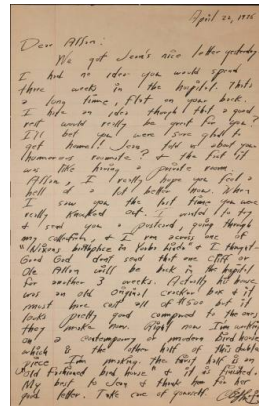 April 22, 1976
Dear Allon:
We got Jean's nice letter yesterday
I had no idea you would spend
three weeks in the hospital. That's
a long time, flat on your back.
I have an idea though that a good
rest would really be great for you?
I'll bet you were sure glad to
get home! Jean told us about your
humorous roommate? & the first bit
was like having private room.
Allon, I really hope you feel a
hell of a lot better now. When
I saw you the last time you were
really knocked out. I wanted to try
& send you a postcard, going through
my collection, & I ran across one of
"Nixons birthplace in Yorba Linda" & I thought-
Good God dont send that one Cliff or
Ole Allon will be back in the hospital
for another 3 weeks. Actually his house
was an old original cracker box & it
must have cost all of $500 but it
looks pretty good compared to the ones
they make now. Right now I'm working
on a contemporary or modern bird house
which is the other half of this double
piece I'm making. The first half is an
old fashioned bird house & it is finished.
My best to Jean & thank her for her
good letter. Take care of yourself.
Cliff